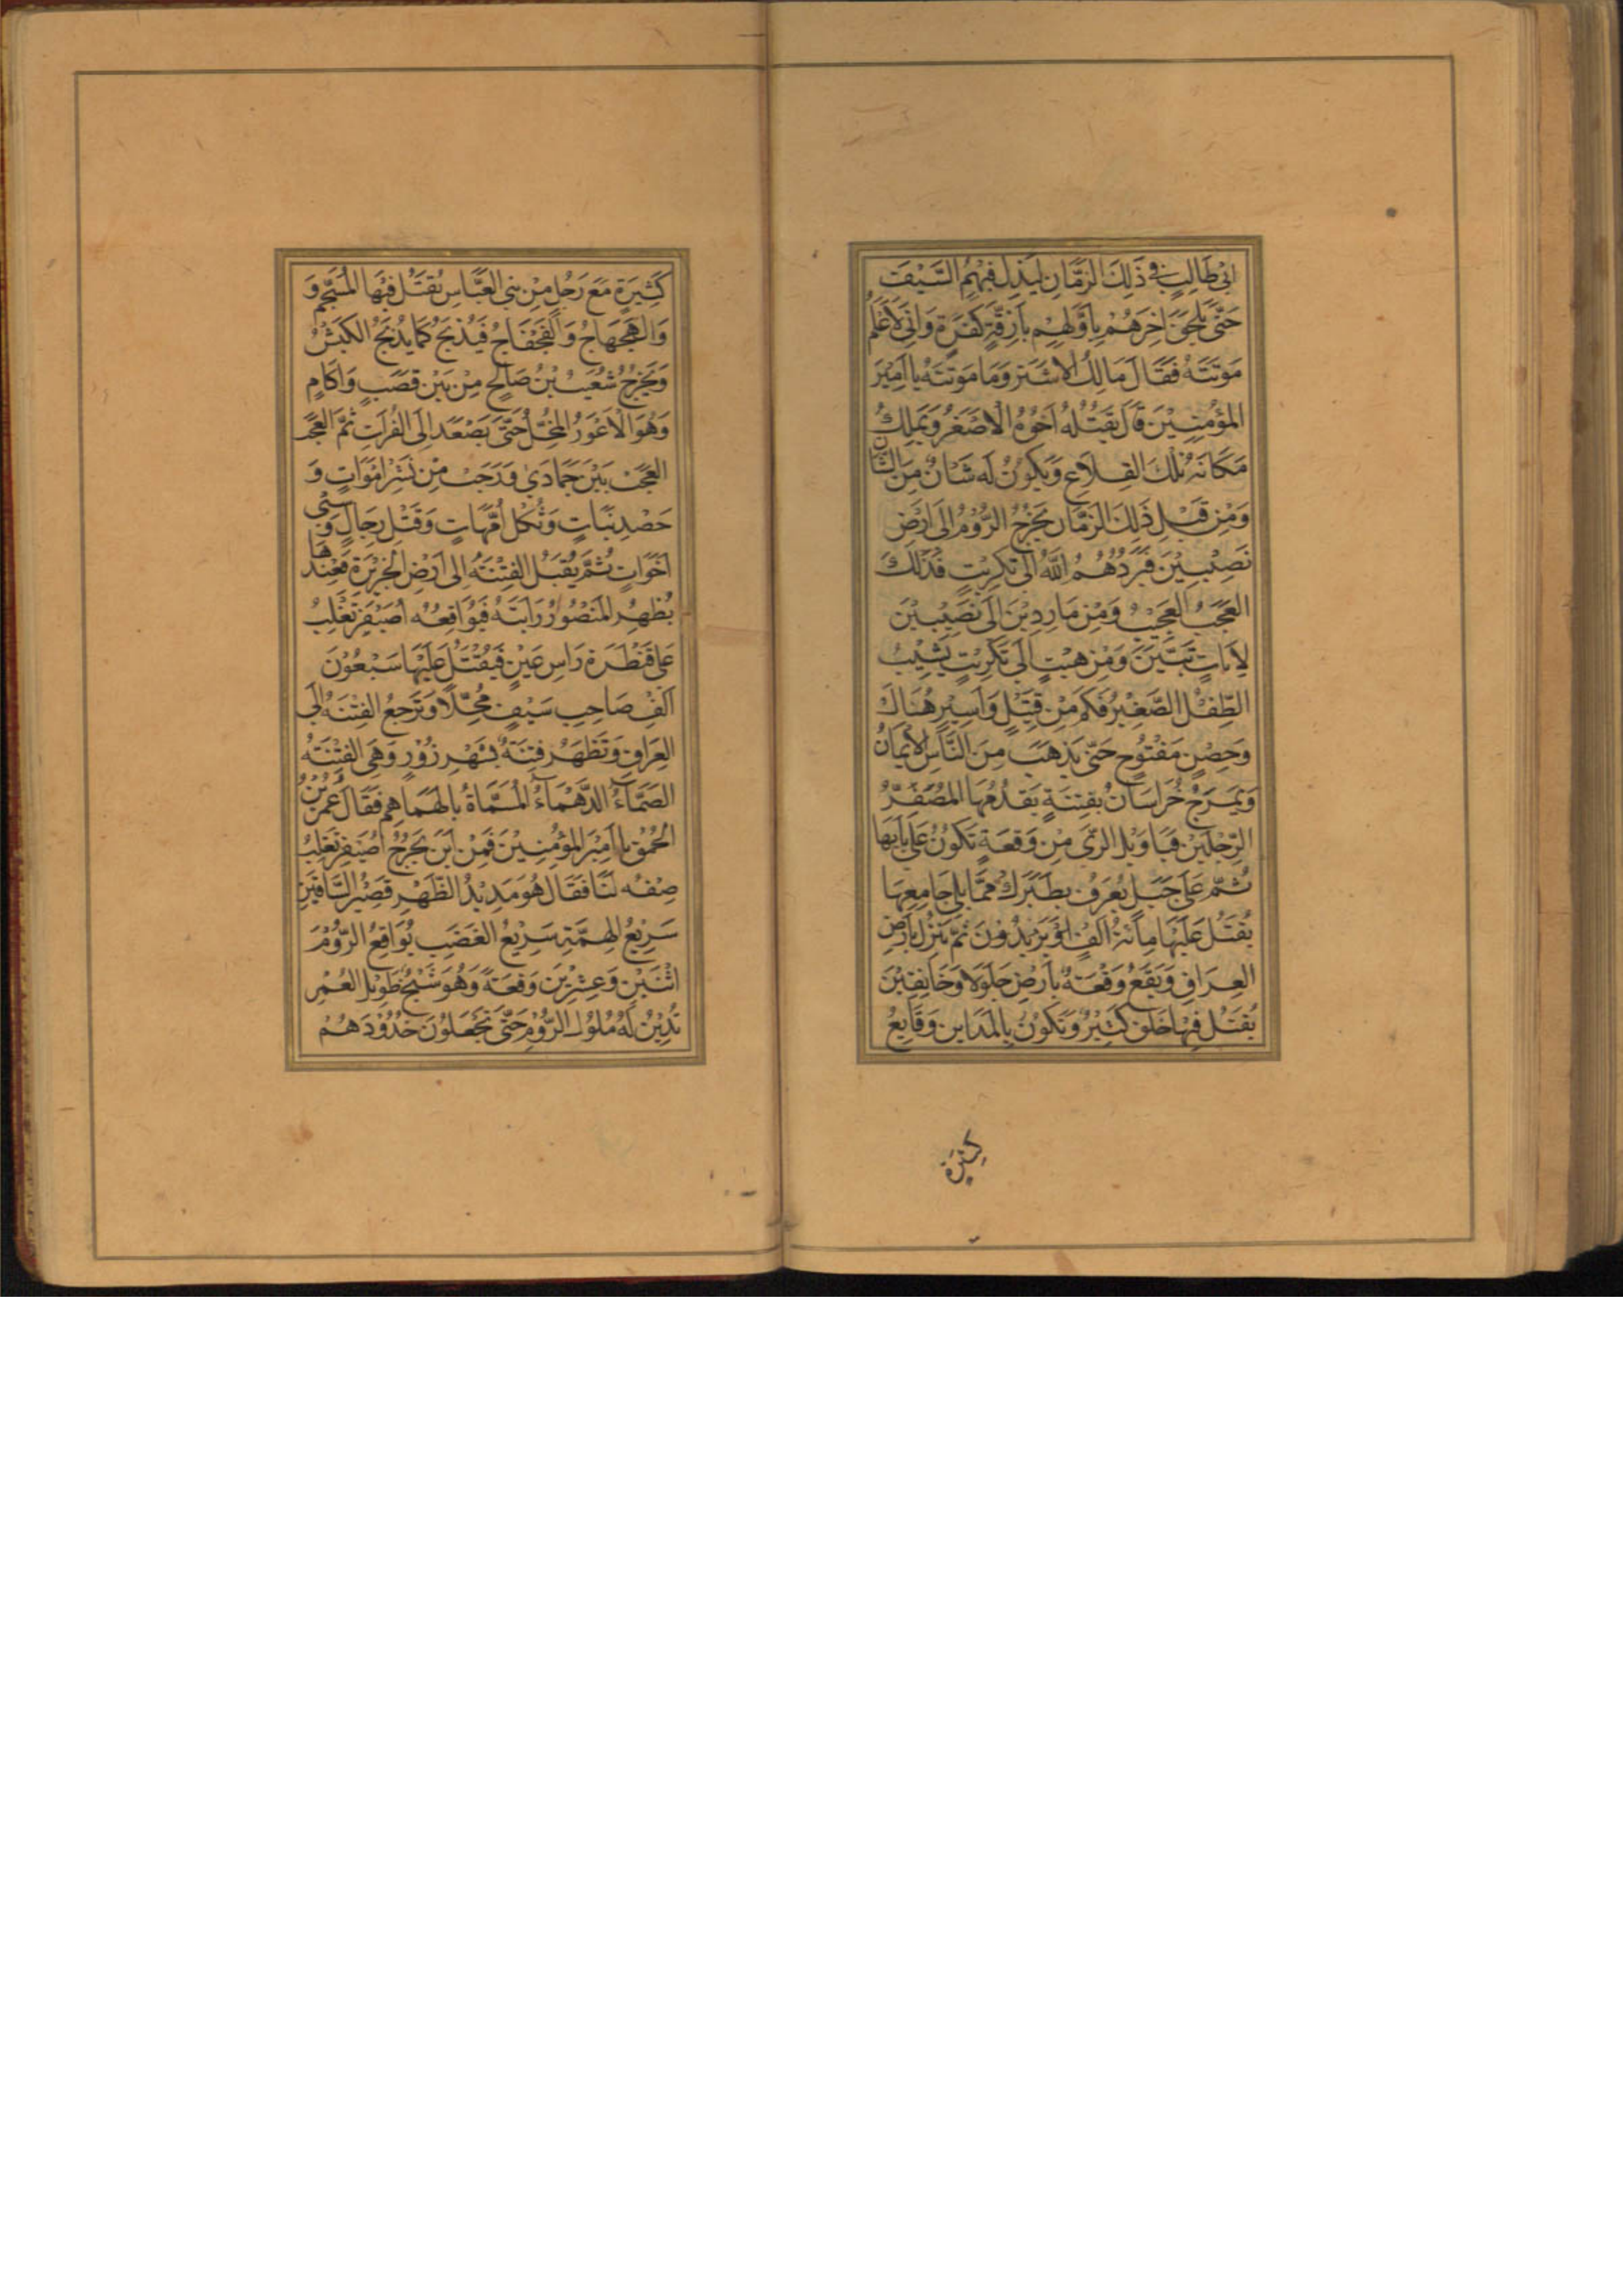 ابي طالب في ذلك الزمان ليبذل فيهم السيف
حتى يلحق اخرهم باولهم بازقة كفرة واني لاعلم
موتته فقال مالك الاشتر وما موتته يا امير
المؤمنين قال يقتله اخوه الاصغر ويملك
مكانه تلك القلاع ويكون له شان من الشان
ومن قبل ذلك الزمان يخرج الروم الى ارض
نصيبين فيردهم الله الى تكريت فذلك
العجب العجيب ومن ماردين الى نصيبين
لايات تبين ومن هيت الى تكريت يشيب
الطفل الصغير فكم من قتيل واسير هناك
وحصن مفتوح حتى يذهب من الناس الايمان
ويمرج خراسان بفتنة يقدمها المصفر
الرجلين فيا ويل الري من وقعة تكون على بابها
ثم على جبل يعرف بطبرك مما يلي جامعها
يقتل عليها مائة الف او يزيدون ثم ينزل بارض
العراق ويقع وقعة بارض جلولا وخانقين
يقتل فيها خلق كثير وتكون بالمداين وقايع
كثيرة
كثيرة مع رجل من بني العباس يقتل فيها و
والهجهاج والفجفاج فيذبح كما يذبح الكبش
ويخرج شعيب بن صالح من بين قصب واكام
وهو الاعور المخل حتى يصعد الى الفرات ثم العجب
العجب بين جمادي ورجب من نشر اموات و
حصد نبات وثكل امهات وقتل رجال وسبي
اخوات ثم يقبل الفتنة الى ارض الجزيرة فعندها
يظهر المنصور رايته فيواقعه اصيفر تغلب
على قنطرة راس عين فيقتل عليها سبعون
الف صاحب سيف محلا وترجع الفتنة الى
العراق وتظهر فتنة بشهر زور وهي الفتنة
الصماء الدهماء المسماة بالهماهم فقال عمر بن
الحمق يا امير المؤمنين فمن اين يخرج اصيفر تغلب
صفه لنا فقال هو مديد الظهر قصير الساقين
سريع الهمة سريع الغضب يواقع الروم
اثنين وعشرين وقعة وهو شيخ طويل العمر
تدين له ملوك الروم حتى تجعلون خدودهم